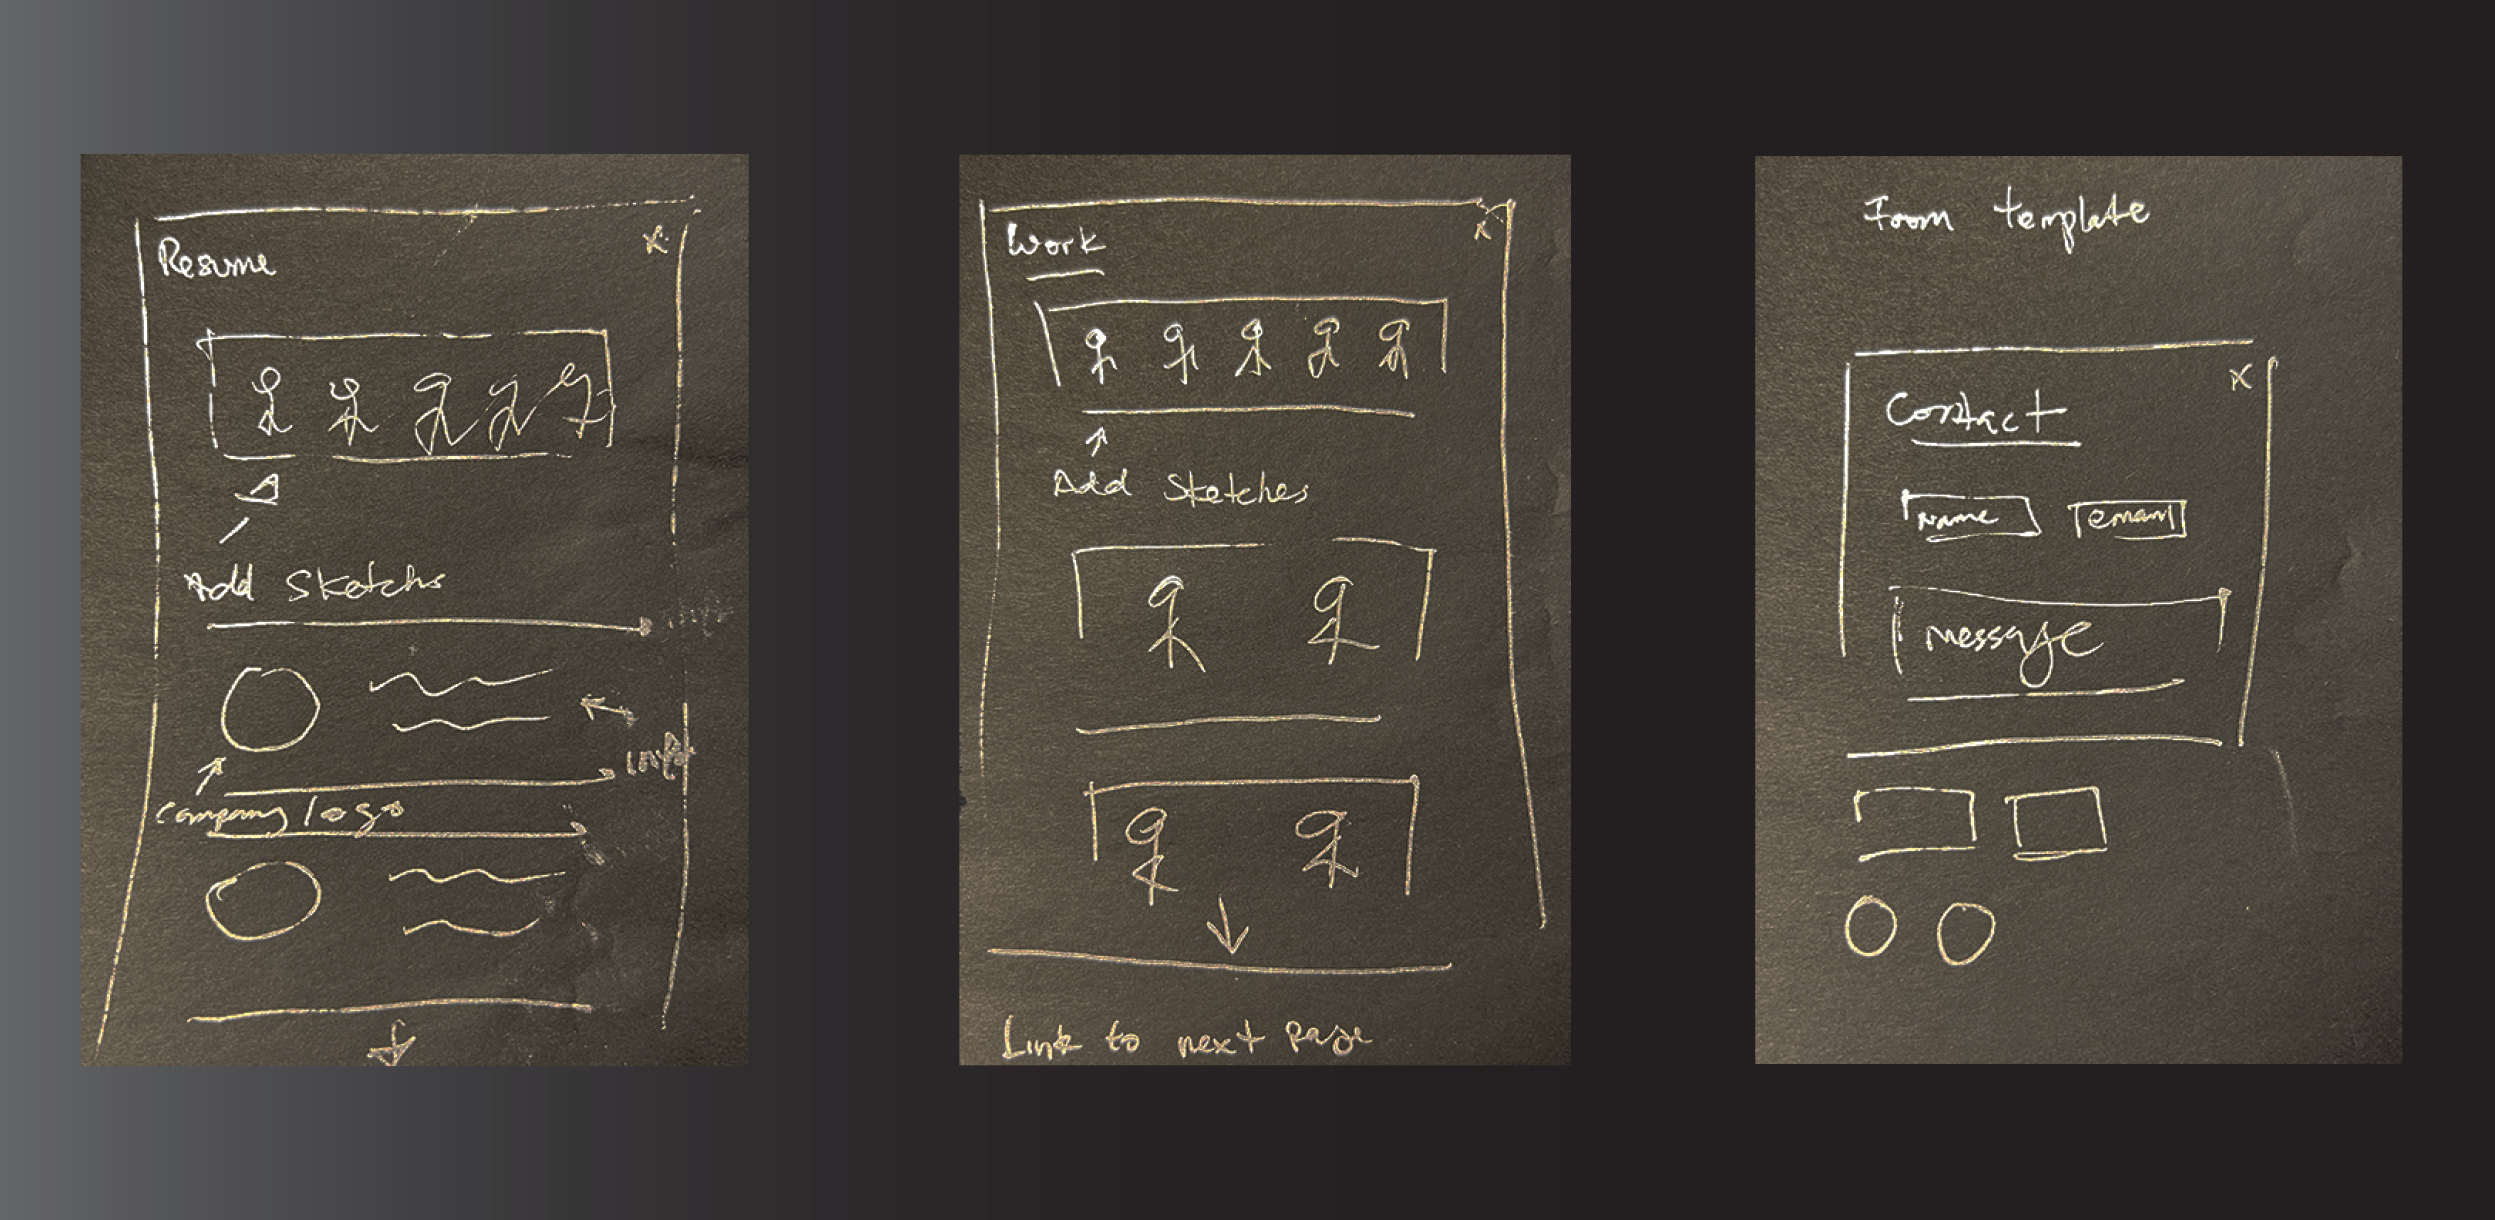 Resume
x
Add Sketchs
company logo
Work
x
Add Sketches
Link to next page
From template
x
Contact
Name
Email
message